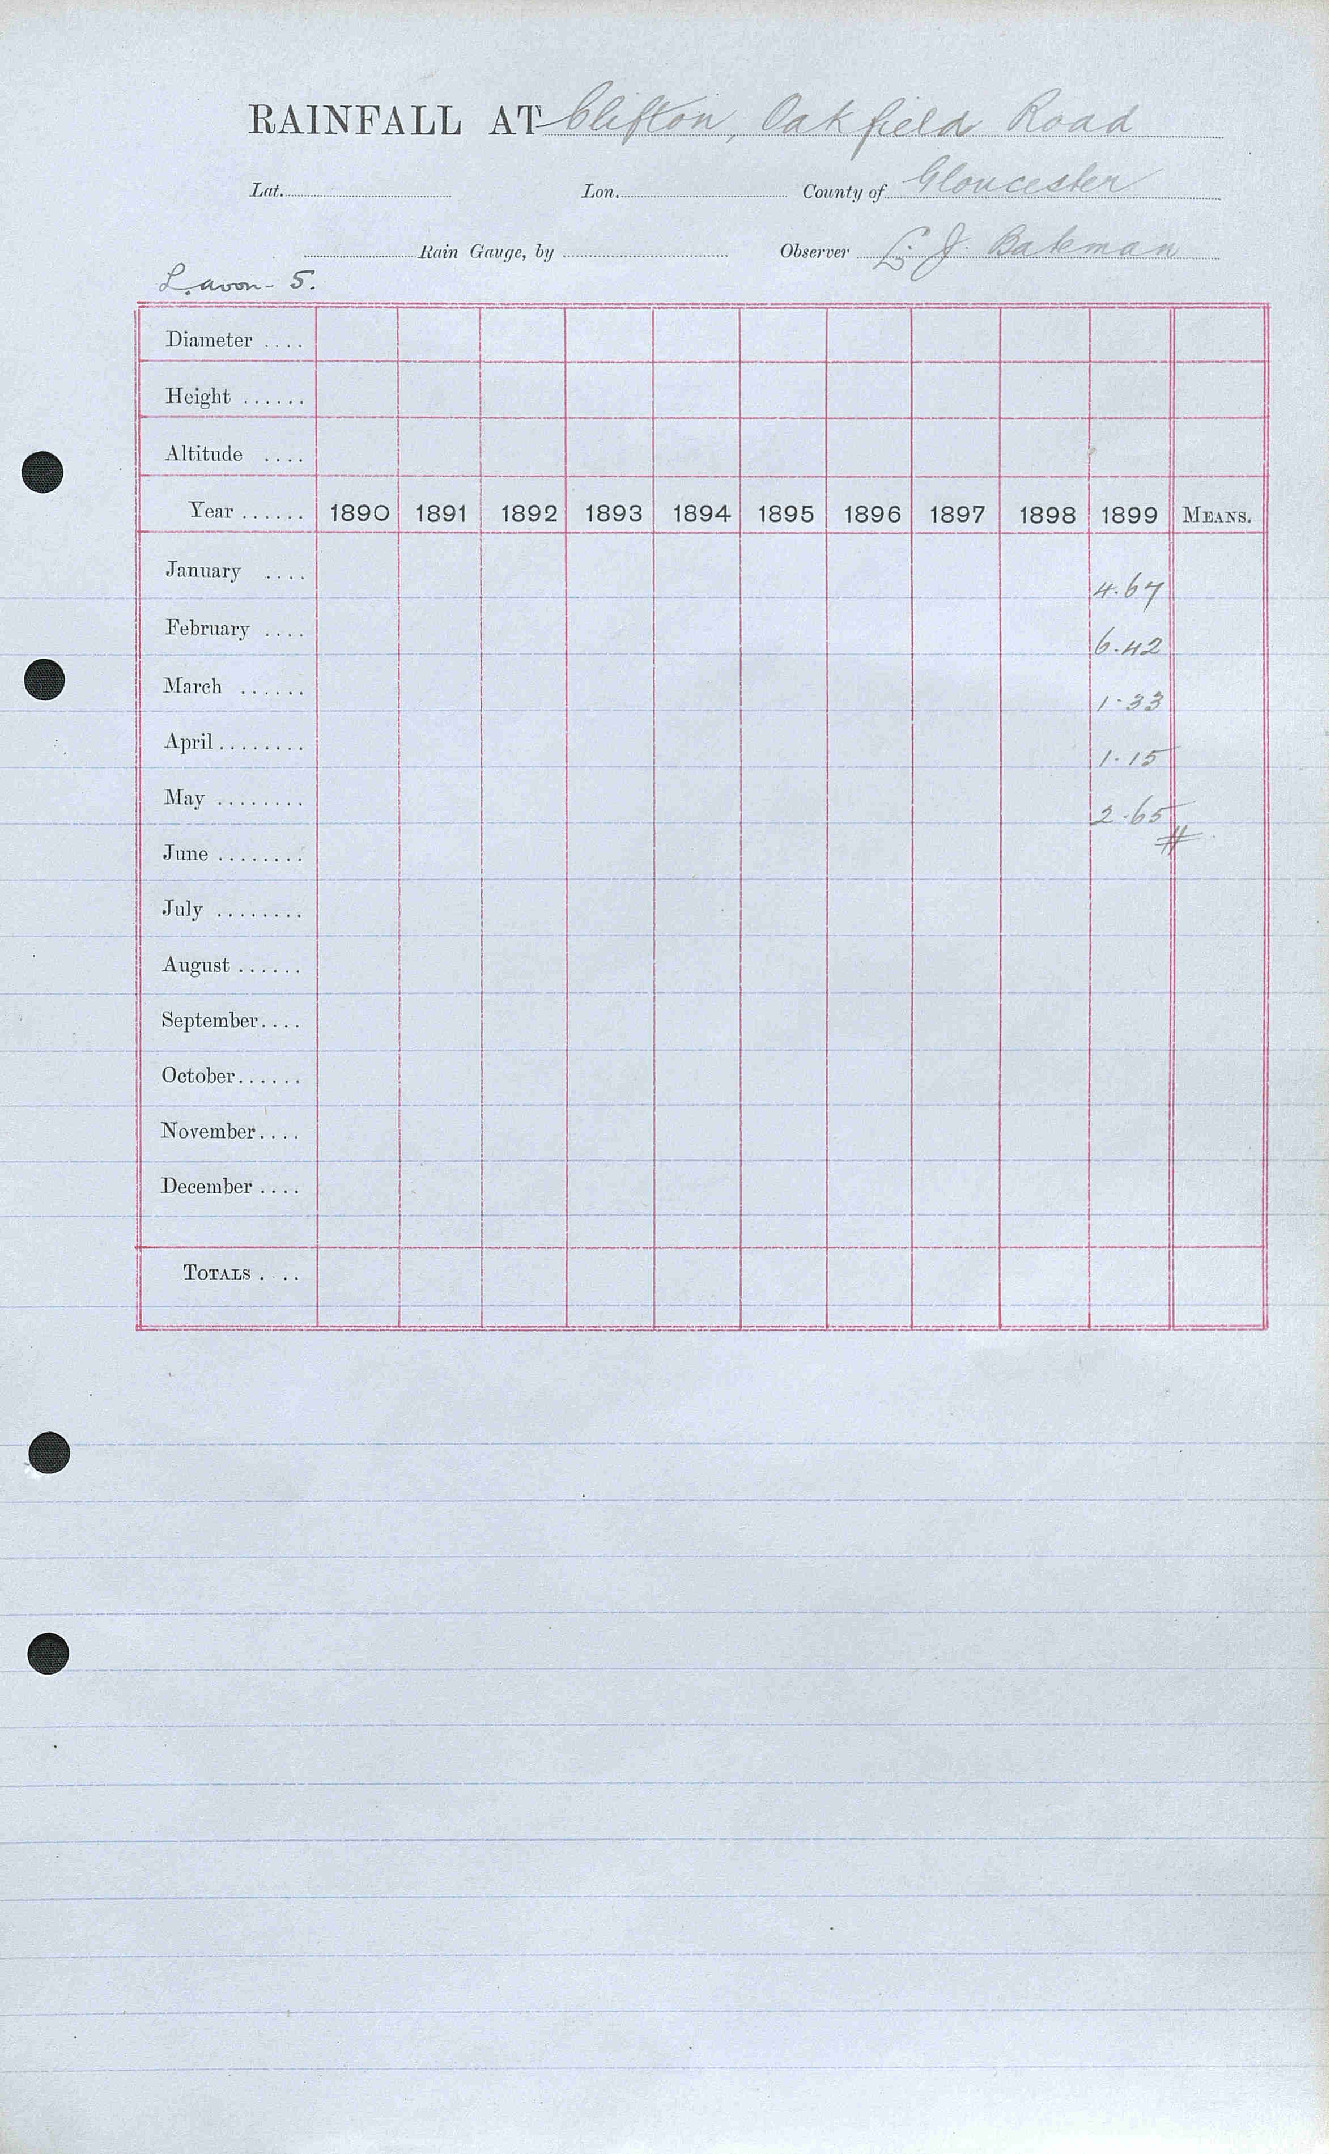 RAINFALL AT Clifton, Oakfield Road
Lat. Lon. County of Gloucester
Rain Gauge, by Observer J. Bateman
L. avon - 5.
Diameter ....
Height ......
Altitude ....
Year ...... 1890 1891 1892 1893 1894 1895 1896 1897 1898 1899 MEANS.
January .... 4.67
February .... 6.42
March ...... 1.33
April ........ 1.15
May ........ 2.65
#
June ........
July ........
August ......
September....
October......
November....
December ....
TOTALS . ..